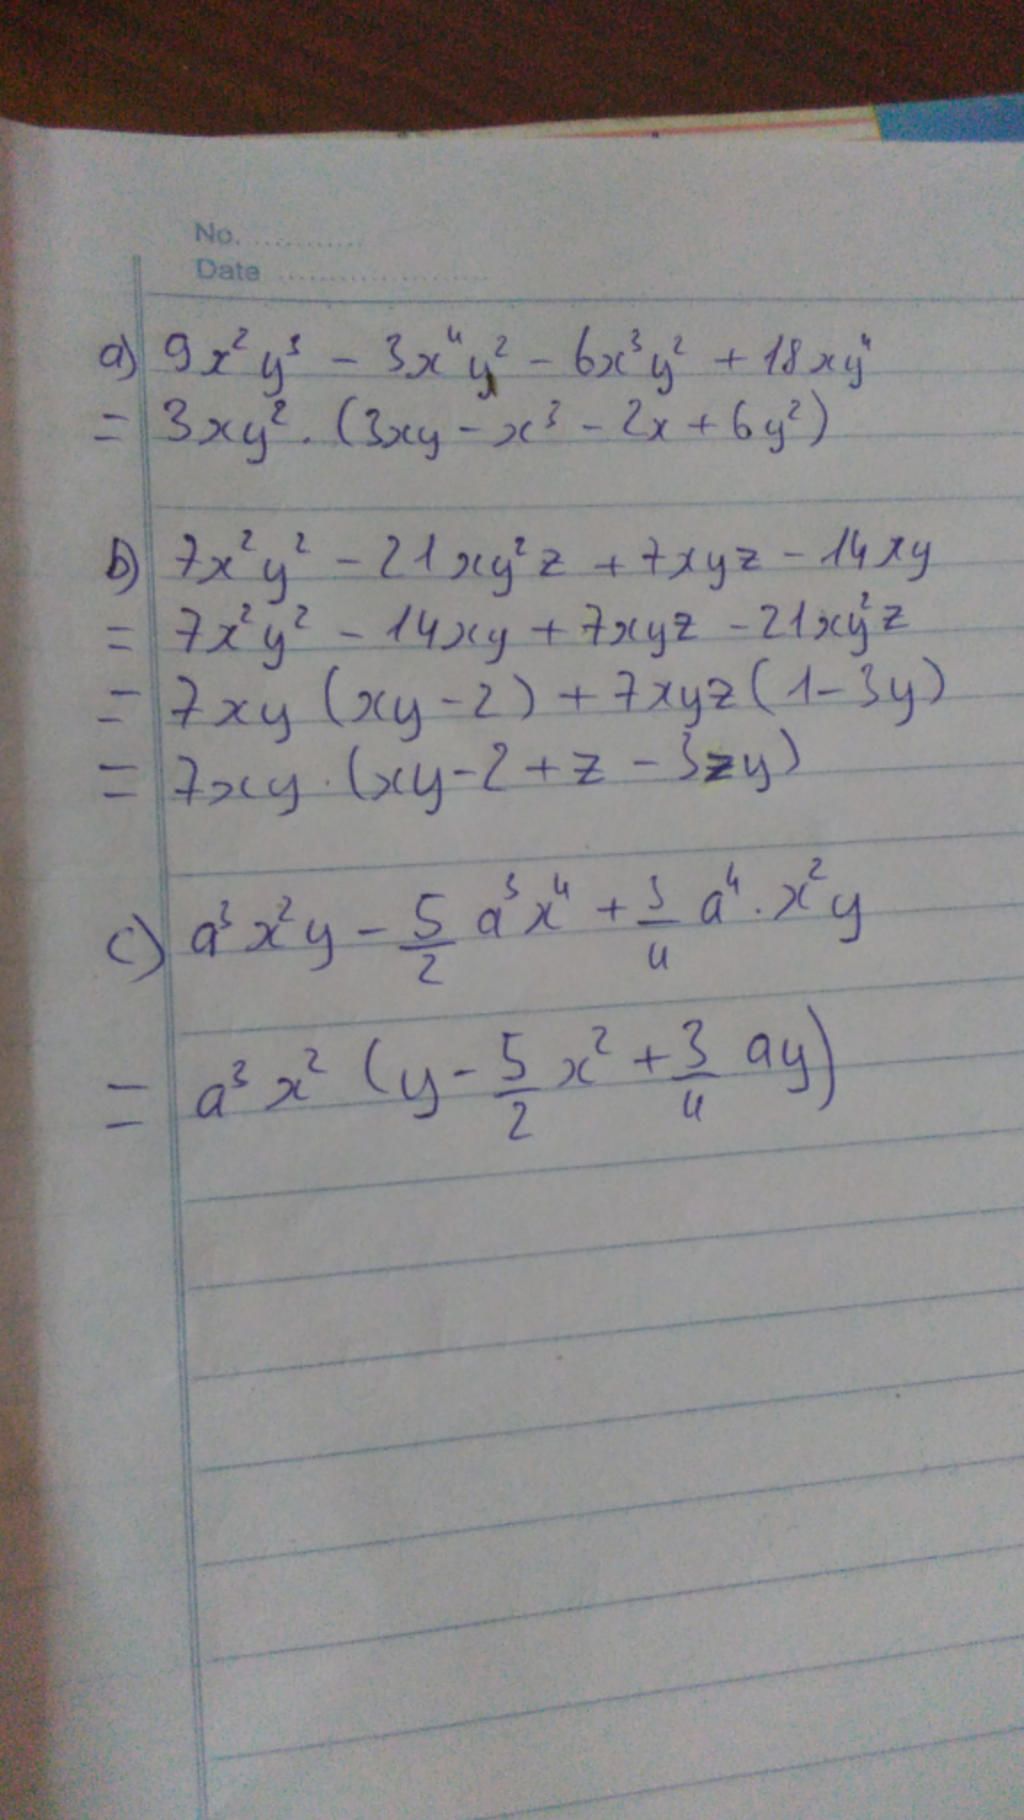 No. ............
Date .....................
a) 9x²y³ - 3x⁴y² - 6x³y² + 18xy⁴
= 3xy² . (3xy - x³ - 2x + 6y²)
b) 7x²y² - 21xy²z + 7xyz - 14xy
= 7x²y² - 14xy + 7xyz - 21xy²z
= 7xy (xy - 2) + 7xyz (1 - 3y)
= 7xy . (xy - 2 + z - 3zy)
c) a³x²y - 5/2 a³x⁴ + 3/4 a⁴ . x²y
= a³x² (y - 5/2 x² + 3/4 ay)